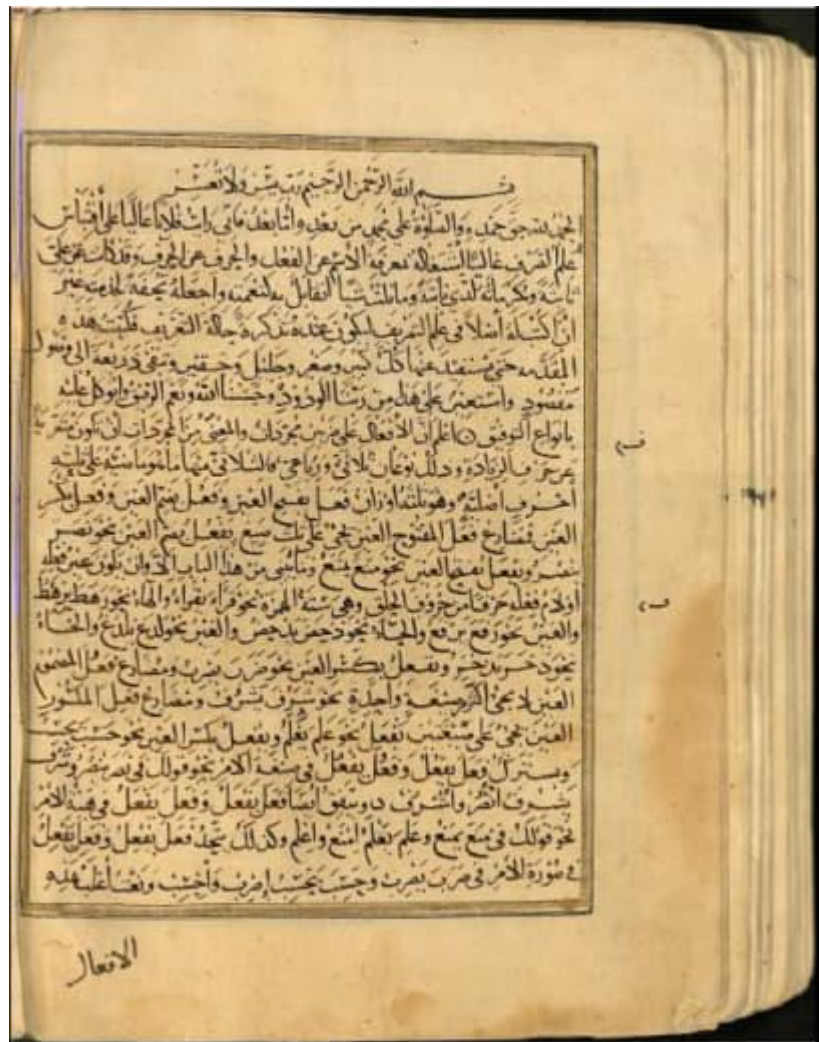 بسم الله الرحمن الرحيم رب يسر ولا تعسر
الحمد لله حق حمده والصلوة على محمد من بعده وأما بعد فانى رأيت فلانا غالبا على اقتباس
علم الصرف غالبا اشتغاله معرفة الاسم عن الفعل والحرف عن الحرف وقد كان عن على
الذى شيئا واجعله تحفة لخدمته غير
ان اكتب له أصلا فى علم التصريف ليكون عنده تذكرة حالة التعريف فكتبت هذه
المقدمه حتى يستفيد عنها كل كبير وصغير وطفل وحقير وتبقى ذريعة الى وصول
مقصود واستعنت على هذا من ربنا الودود وحسبنا الله ونعم الرفيق وأتوكل عليه
بانواع التوفيق اعلم ان الأفعال على ضربين مجردات والمعنى من المجردات ان تكون متعرية
عن حرف الزيادة وذلك نوعان ثلاثى ورباعى فالثلاثى منها ما هو ماضيه على ثلثة
احرف أصلية وهو ثلثة اوزان فعل بفتح العين وفعل بضم العين وفعل بكسر
العين فمضارع فعل المفتوح العين يجئ على ثلث صيغ يفعل بضم العين نحو نصر
ينصر ويفعل بفتح العين نحو منع يمنع وما شئ من هذا الباب الا وان يكون عين فعله
أو لام فعله حرفا من حروف الحلق وهى ستة الهمزة نحو قرأ يقرأ والهاء نحو رهط يرهط
والعين نحو رفع يرفع والحاء نحو دحض يدحض والغين نحو لدغ يلدغ والخاء
نحو دخر يدخر ويفعل بكسر العين نحو ضرب يضرب ومضارع فعل المضموم
العين لا يجئ اكثر صيغة واحدة نحو شرف يشرف ومضارع فعل المكسور
العين يجئ على صيغتين يفعل نحو علم يعلم ويفعل بكسر العين نحو حسب يحسب
ويشترك فعل يفعل وفعل يفعل فى صيغة الأمر نحو قولك فى نصر ينصر وشرف
يشرف انصر واشرف ويتفق ايضا فعل يفعل وفعل يفعل فى هيئة الأمر
نحو قولك فى منع يمنع وعلم يعلم امنع واعلم وكذلك يتحد فعل يفعل وفعل يفعل
فى صورة الأمر فى ضرب يضرب وحسب يحسب إضرب واحسب وبعض أغلب هذه
الافعال